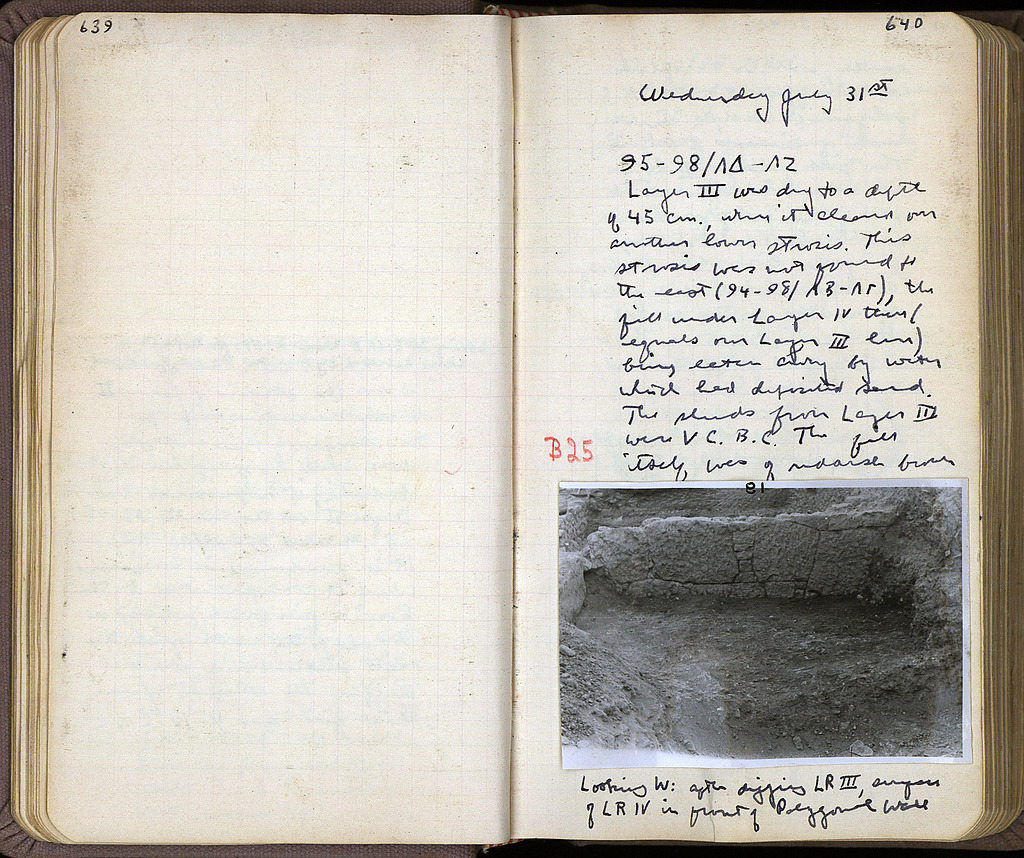 639
640
Wednesday July 31st
95-98/ΛΔ-ΛΖ
Layer III was dug to a depth
of 45 cm., when it cleared on
another lower strosis. This
strosis was not found to
the east (94-98/ΛΒ-ΛΓ), the
fill under Layer IV there (
equals our Layer III here)
being eaten away by water
which had deposited sand.
The sherds from Layer III
were V C. B.C. The fill
B25
itself, was of reddish brown
81
Looking W: after digging LR III, surface
of LR IV in front of Polygonal Wall